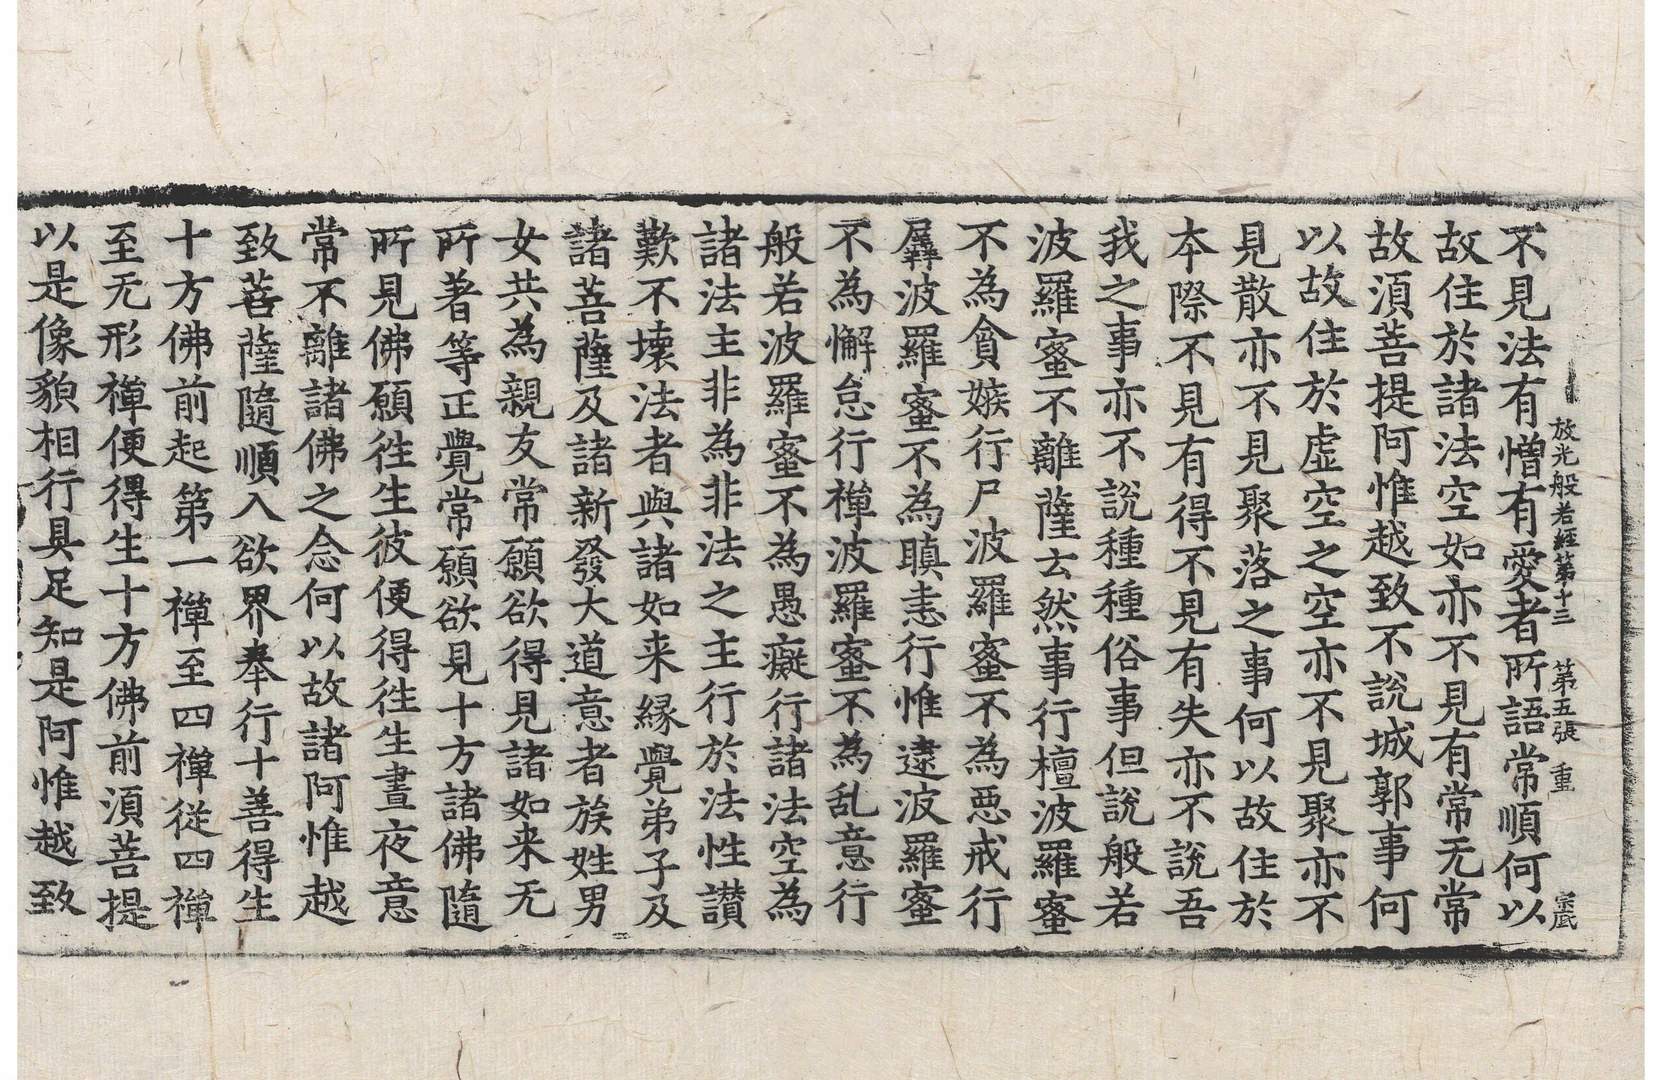 放光般若經第十三　第五張　重　宗底
不見法有憎有愛者所語常順何以
故住於諸法空如亦不見有常无常
故湏菩提阿惟越致不說城郭事何
以故住於虛空之空亦不見聚亦不
見散亦不見聚落之事何以故住於
本際不見有得不見有失亦不說吾
我之事亦不說種種俗事但說般若
波羅蜜不離薩云然事行檀波羅蜜
不為貪嫉行尸波羅蜜不為惡戒行
羼波羅蜜不為瞋恚行惟逮波羅蜜
不為懈怠行禪波羅蜜不為乱意行
般若波羅蜜不為愚癡行諸法空為
諸法主非為非法之主行於法性讃
歎不壞法者與諸如来縁覺弟子及
諸菩薩及諸新發大道意者族姓男
女共為親友常願欲得見諸如来无
所著等正覺常願欲見十方諸佛隨
所見佛願徃生彼便得徃生晝夜意
常不離諸佛之念何以故諸阿惟越
致菩薩隨順入欲界奉行十善得生
十方佛前起第一禪至四禪從四禪
至无形禪便得生十方佛前湏菩提
以是像貌相行具足知是阿惟越致